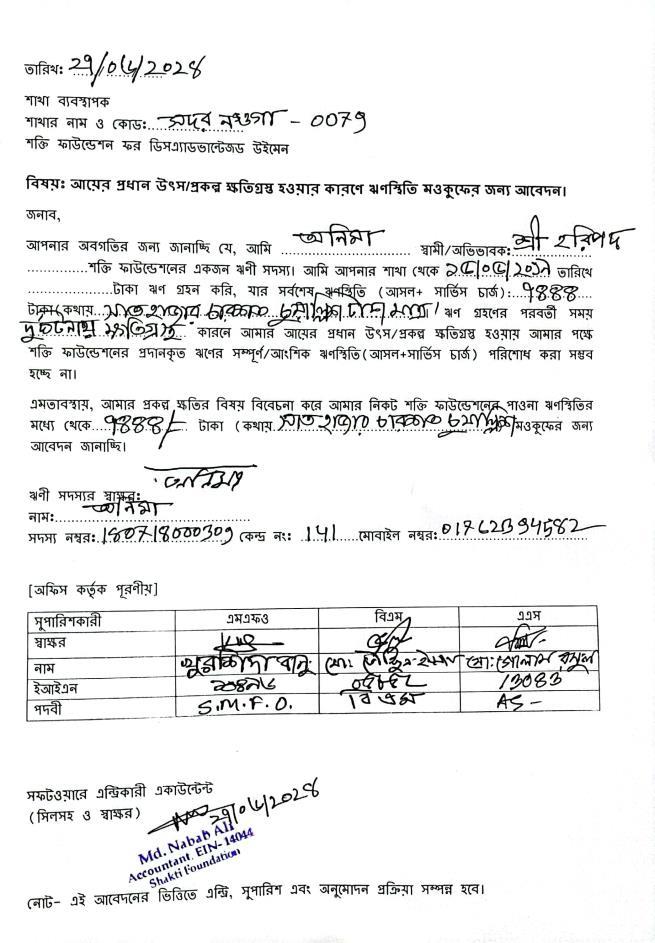 তারিখ: ২৯/০৫/২০২৪
শাখা ব্যবস্থাপক
শাখার নাম ও কোড: সদর নওগা - ০০৭৯
শক্তি ফাউন্ডেশন ফর ডিসএ্যাডভান্টেজড উইমেন
বিষয়ঃ আয়ের প্রধান উৎস/প্রকল্প ক্ষতিগ্রস্ত হওয়ার কারণে ঋণস্থিতি মওকুফের জন্য আবেদন।
জনাব,
আপনার অবগতির জন্য জানাচ্ছি যে, আমি অনিমা স্বামী/অভিভাবক: শ্রী হরিপদ
শক্তি ফাউন্ডেশনের একজন ঋণী সদস্য। আমি আপনার শাখা থেকে তারিখে
টাকা ঋণ গ্রহন করি, যার সর্বশেষ ঋণস্থিতি (আসল+ সার্ভিস চার্জ): ৭৪৪৪
টাকা(কথায় সাত হাজার চারশত চুয়াল্লিশ টাকা মাত্র। ঋণ গ্রহণের পরবর্তী সময়
ক্ষতিগ্রস্ত কারনে আমার আয়ের প্রধান উৎস/প্রকল্প ক্ষতিগ্রস্ত হওয়ায় আমার পক্ষে
শক্তি ফাউন্ডেশনের প্রদানকৃত ঋণের সম্পূর্ণ/আংশিক ঋণস্থিতি(আসল+সার্ভিস চার্জ) পরিশোধ করা সম্ভব
হচ্ছে না।
এমতাবস্থায়, আমার প্রকল্প ক্ষতির বিষয় বিবেচনা করে আমার নিকট শক্তি ফাউন্ডেশনের পাওনা ঋণস্থিতির
মধ্যে থেকে ৭৪৪৪/- টাকা (কথায় সাত হাজার চারশত চুয়াল্লিশ মওকুফের জন্য
আবেদন জানাচ্ছি।
অনিমা
ঋণী সদস্যর স্বাক্ষর:
নাম: অনিমা
সদস্য নম্বর: 180718000309 কেন্দ্র নং: 141 মোবাইল নম্বর: 01762394582
[অফিস কর্তৃক পূরণীয়]
সুপারিশকারী এমএফও বিএম এএস
স্বাক্ষর
নাম খুরশিদা বানু মো: মো: গোলাম রসুল
ইআইএন 13083
পদবী S.M.F.O. বিএম AS -
সফটওয়ারে এন্ট্রিকারী একাউন্টেন্ট
(সিলসহ ও স্বাক্ষর) ২৯/০৫/২০২৪
Md. Nabab Ali
Accountant. EIN- 14044
Shakti Foundation
(নোট- এই আবেদনের ভিত্তিতে এন্ট্রি, সুপারিশ এবং অনুমোদন প্রক্রিয়া সম্পন্ন হবে।